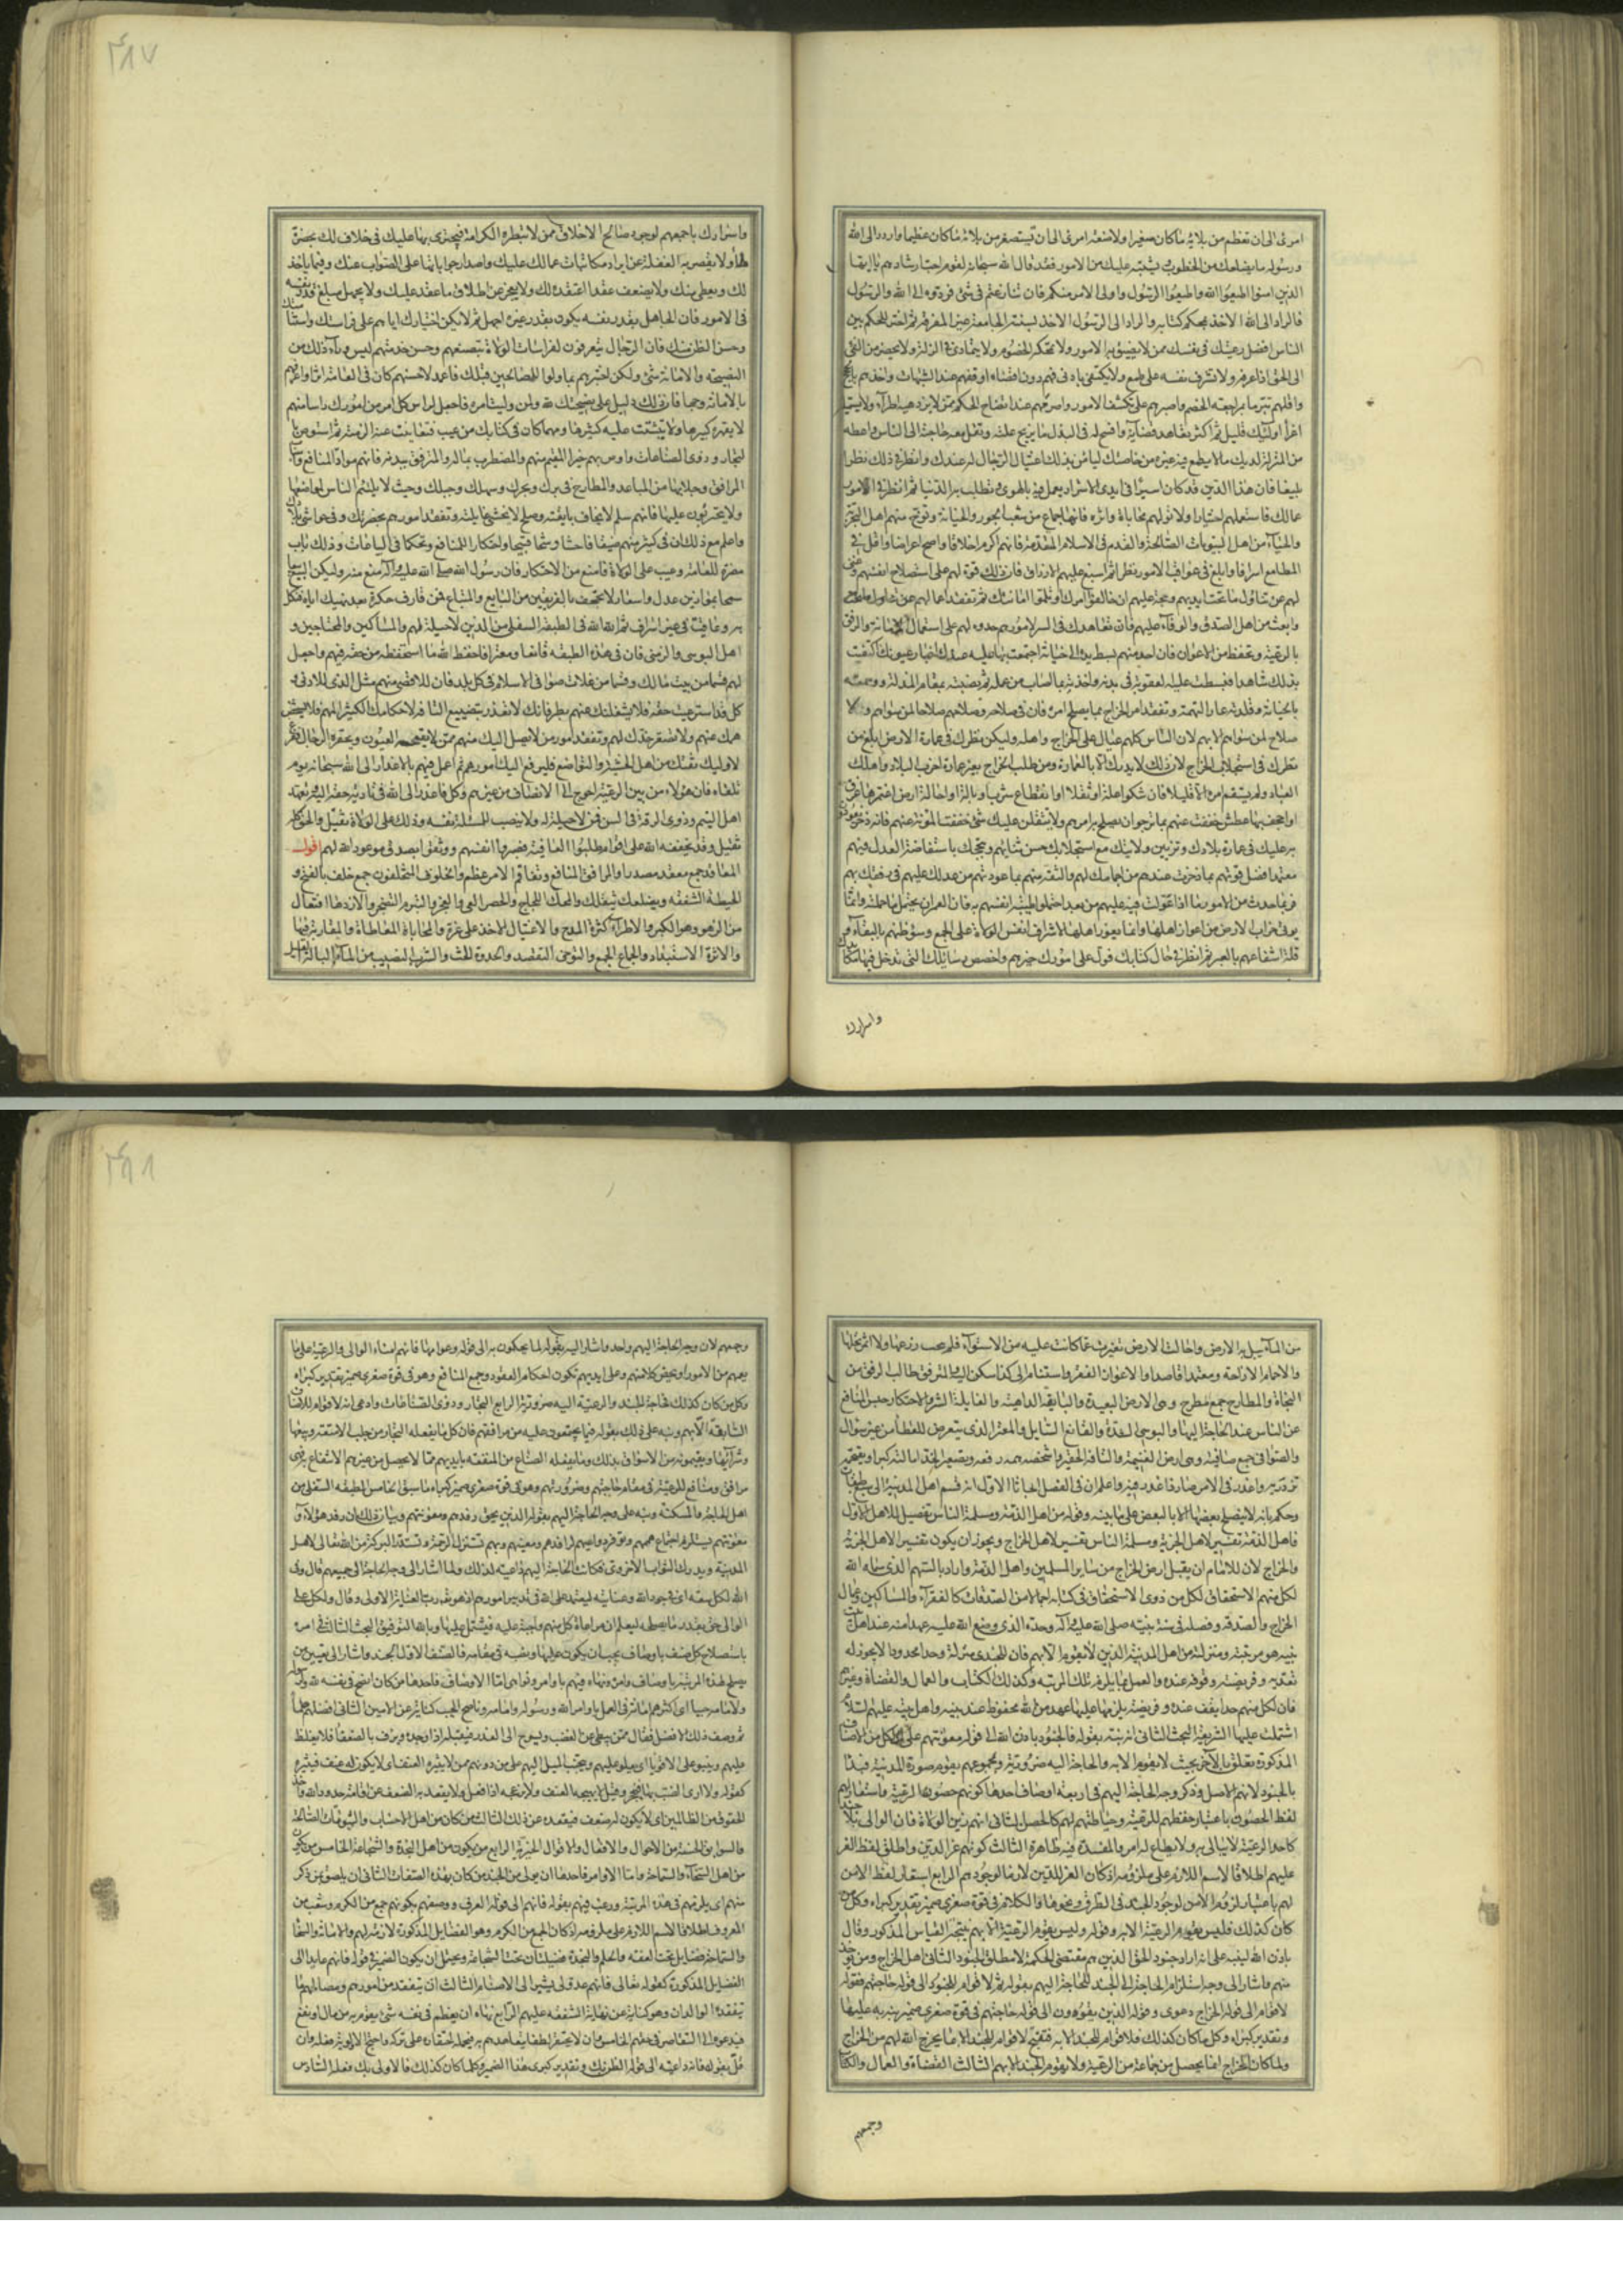 امرئ الى ان تعظم من بلائه ما كان صغيرا ولا ضعة امرئ الى ان تستصغر من بلائه ما كان عظيما واردد الى الله
ورسوله ما يضلعك من الخطوب ويشتبه عليك من الامور فقد قال الله سبحانه لقوم احب ارشادهم يا ايها
الذين امنوا اطيعوا الله واطيعوا الرسول واولى الامر منكم فان تنازعتم فى شئ فردوه الى الله والرسول
فالراد الى الله الاخذ بمحكم كتابه والراد الى الرسول الاخذ بسنته الجامعة غير المفرقة ثم اختر للحكم بين
الناس افضل رعيتك فى نفسك ممن لا يضيق به الامور ولا تمحكه الخصوم ولا يتمادى فى الزلة ولا يحصر من الفئ
الى الحق اذا عرفه ولا تشرف نفسه على طمع ولا يكتفى بادنى فهم دون اقصاه اوقفهم عند الشبهات واخذهم بالحجج
واقلهم تبرما بمراجعة الخصم واصبرهم على تكشف الامور واصرمهم عند اتضاح الحكم ممن لا يزدهيه اطراء ولا يستميله
اغراء اولئك قليل ثم اكثر تعاهد قضائه وافسح له فى البذل ما يزيح علته وتقل معه حاجته الى الناس واعطه
من المنزلة لديك ما لا يطمع فيه غيره من خاصتك ليأمن بذلك اغتيال الرجال له عندك وانظر فى ذلك نظرا
بليغا فان هذا الدين قد كان اسيرا فى ايدى الاشرار يعمل فيه بالهوى وتطلب به الدنيا ثم انظر فى امور
عمالك فاستعملهم اختبارا ولا تولهم محاباة واثرة فانها جماع من شعب الجور والخيانة وتوخ منهم اهل التجربة
والحياء من اهل البيوتات الصالحة والقدم فى الاسلام المتقدمة فانهم اكرم اخلاقا واصح اعراضا واقل فى
المطامع اسرافا وابلغ فى عواقب الامور نظرا ثم اسبغ عليهم الارزاق فان ذلك قوة لهم على استصلاح انفسهم وغنى
لهم عن تناول ما تحت ايديهم وحجة عليهم ان خالفوا امرك او ثلموا امانتك ثم تفقد اعمالهم
وابعث من اهل الصدق والوفاء عليهم فان تعاهدك فى السر لامورهم حدوة لهم على استعمال الامانة والرفق
بالرعية وتحفظ من الاعوان فان احد منهم بسط يده الى خيانة اجتمعت بها عليه عندك اخبار عيونك اكتفيت
بذلك شاهدا فبسطت عليه العقوبة فى بدنه واخذته بما اصاب من عمله ثم نصبته بمقام المذلة ووسمته
بالخيانة وقلدته عار التهمة وتفقد امر الخراج بما يصلح امره فان فى صلاحه وصلاحهم صلاحا لمن سواهم ولا
صلاح لمن سواهم الا بهم لان الناس كلهم عيال على الخراج واهله وليكن نظرك فى عمارة الارض ابلغ من
نظرك فى استجلاب الخراج لان ذلك لا يدرك الا بالعمارة ومن طلب الخراج بغير عمارة اخرب البلاد واهلك
العباد ولم يستقم امره الا قليلا فان شكوا علة او ثقلا او انقطاع شرب او بالة او احالة ارض اغتمرها غرق
او اجحف بها عطش خففت عنهم بما ترجو ان يصلح به امرهم ولا يثقلن عليك شئ خففت المؤنة عنهم فانه ذخر يعودون
به عليك فى عمارة بلادك وتزيين ولايتك مع استجلابك حسن ثنائهم وتبجحك باستفاضة العدل فيهم
معتمدا فضل قوتهم بما ذخرت عندهم من اجمامك لهم والثقة منهم بما عودتهم من عدلك عليهم فى رفقك بهم
فربما حدث من الامور ما اذا عولت فيه عليهم من بعد احتملوه طيبة انفسهم به فان العمران محتمل ما حملته وانما
يؤتى خراب الارض من اعواز اهلها وانما يعوز اهلها لاشراف انفس الولاة على الجمع وسوء ظنهم بالبقاء و
قلة انتفاعهم بالعبر ثم انظر فى حال كتابك فول على امورك خيرهم واخصص رسائلك التى تدخل فيها مكائدك
واسرارك
۴۸۷
واسرارك باجمعهم لوجوه صالح الاخلاق ممن لا تبطره الكرامة فيجترئ بها عليك فى خلاف لك بحضرة
ملأ ولا تقصر به الغفلة عن ايراد مكاتبات عمالك عليك واصدار جواباتها على الصواب عنك وفيما ياخذ
لك ويعطى منك ولا يضعف عقدا اعتقده لك ولا يعجز عن اطلاق ما عقد عليك ولا يجهل مبلغ قدر نفسه
فى الامور فان الجاهل بقدر نفسه يكون بقدر غيره اجهل ثم لا يكن اختيارك اياهم على فراستك واستنامتك
وحسن الظن منك فان الرجال يتعرفون لفراسات الولاة بتصنعهم وحسن خدمتهم ليس وراء ذلك من
النصيحة والامانة شئ ولكن اختبرهم بما ولوا للصالحين قبلك فاعمد لاحسنهم كان فى العامة اثرا واعرفهم
بالامانة وجها فان ذلك دليل على نصيحتك لله ولمن وليت امره واجعل لراس كل امر من امورك راسا منهم
لا يقهره كبيرها ولا يتشتت عليه كثيرها ومهما كان فى كتابك من عيب فتغابيت عنه الزمته ثم استوص بال
تجار وذوى الصناعات واوص بهم خيرا المقيم منهم والمضطرب بماله والمترفق ببدنه فانهم مواد المنافع واسباب
المرافق وجلابها من المباعد والمطارح فى برك وبحرك وسهلك وجبلك وحيث لا يلتئم الناس لمواضعها
ولا يجترئون عليها فانهم سلم لا يخاف بايقته وصلح لا يخشى غايلته وتفقد امورهم بحضرتك وفى حواشى بلادك
واعلم مع ذلك ان فى كثير منهم ضيقا فاحشا وشحا قبيحا واحتكارا للمنافع وتحكما فى البياعات وذلك باب
مضرة للعامة وعيب على الولاة فامنع من الاحتكار فان رسول الله صلى الله عليه وآله منع منه وليكن البيع بيعا
سمحا بموازين عدل واسعار لا تجحف بالفريقين من البايع والمبتاع فمن قارف حكرة بعد نهيك اياه فنكل
به وعاقب فى غير اسراف ثم الله الله فى الطبقة السفلى من الذين لا حيلة لهم والمساكين والمحتاجين و
اهل البوسى والزمنى فان فى هذه الطبقة قانعا ومعترا فاحفظ الله ما استحفظك من حقه فيهم واجعل
لهم قسما من بيت مالك وقسما من غلات صوافى الاسلام فى كل بلد فان للاقصى منهم مثل الذى للادنى و
كل قد استرعيت حقه فلا يشغلنك عنهم بطر فانك لا تعذر بتضييع التافه لاحكامك الكثير المهم فلا تشخص
همك عنهم ولا تصعر خدك لهم وتفقد امور من لا يصل اليك منهم ممن تقتحمه العيون وتحقره الرجال ففرغ
لاولئك ثقتك من اهل الخشية والتواضع فليرفع اليك امورهم ثم اعمل فيهم بالاعذار الى الله سبحانه يوم
تلقاه فان هؤلاء من بين الرعية احوج الى الانصاف من غيرهم وكل فاعذر الى الله فى تادية حقه اليه وتعهد
اهل اليتم وذوى الرقة فى السن ممن لا حيلة له ولا ينصب للمسئلة نفسه وذلك على الولاة ثقيل والحق كله
ثقيل وقد يخففه الله على اقوام طلبوا العافية فصبروا انفسهم ووثقوا بصدق موعود الله لهم اقول
المعاقد جمع معقد مصدر والمرافق المنافع وتفاقم الامر عظم والخلوف المتخلفون جمع خلف بالفتح و
الحيطة الشفقة ويضلعك يثقلك والمحك اللجاج والحصر العى والتبرم التضجر والازدهاء افتعال
من الزهو وهو الكبر والاطراء كثرة المدح والاغتيال الاخذ على غرة والمحاباة المعاطاة والمقاربة فيها
والاثرة الاستبداد والجماع الجمع والتوخى التقصد والحدوة الحث والشرب النصيب من الماء والبالة
من الماء يبل به الارض واحالت الارض تغيرت عما كانت عليه من الاستواء فلم يجب زرعها ولا اثمر نخلها
والاجمام الاراحة ومعتمدا قاصدا والاعواز الفقر واستنام الى كذا سكن اليه والمترفق طالب الرفق من
التجارة والمطارح جمع مطرح وهى الارض البعيدة والبايقة الداهية والغايلة الشر والاحتكار حبس المنافع
عن الناس عند الحاجة اليها والبوسى الشدة والقانع السايل والمعتر الذى يتعرض للعطاء من غير سؤال
والصوافى جمع صافية وهى ارض الغنيمة والتافه الحقير واشخص همه رفعه وتصعير الخد امالته كبرا وتقتحمه
تزدريه واعذر فى الامر صار ذا عذر فيه واعلم ان فى الفصل ابحاثا الاول انه قسم اهل المدينة الى سبع طبقات
وحكم بانه لا يصلح بعضها الا بالبعض على ما بينه وقوله من اهل الذمة ومسلمة الناس تفصيل للاهل الاول
فاهل الذمة تفسير لاهل الجزية ومسلمة الناس تفسير لاهل الخراج ويجوز ان يكون تفسيرا لاهل الجزية
والخراج لان للامام ان يقبل ارض الخراج من ساير المسلمين واهل الذمة واراد بالسهم الذى سماه الله
لكل منهم الاستحقاق لكل من ذوى الاستحقاق فى كتابه اجمالا من الصدقات كالفقراء والمساكين وعمال
الخراج والصدقة وفصله فى سنة نبيه صلى الله عليه وآله وحده الذى وضع الله عليه عهدا منه عند اهل بيت
نبيه هو مرتبته ومنزلته من اهل المدينة الذين لا تقوم الا بهم فان للجندى منزلة وحدا محدودا لا يجوز له
تعديه وفريضته وقوفه عنده والعمل بما يلزم تلك المرتبة وكذلك الكتاب والعمال والقضاة وغيرهم
فان لكل منهم حدا يقف عنده وفريضة يلزمها عليها عهد من الله محفوظ عند نبيه واهل بيته عليهم السلام
اشتملت عليها الشريعة البحث الثانى انه نبه بقوله فالجنود باذن الله الى قوله معونتهم على ان كل من الاصناف
المذكورة تعلق بالآخر بحيث لا يقوم الا به والحاجة اليه ضرورية وبمجموعهم يقوم صورة المدينة فبدا
بالجنود لانهم الاصل وذكر وجه الحاجة اليهم فى اربعة اوصاف احدها كونهم حصون الرعية واستعار لهم
لفظ الحصون باعتبار حفظهم للرعية وحياطتهم لهم كالحصن الثانى انهم زين الولاة فان الوالى بلا جند
كاحد الرعية لا يبالى به ولا يطاع له امر والمفسدة فيه ظاهرة الثالث كونهم عز الدين واطلق لفظ العز
عليهم اطلاقا لاسم اللازم على ملزومه اذ كان العز للدين لازما لوجودهم الرابع استعار لفظ الامن
لهم باعتبار لزوم الامن لوجود الجند فى الطرق ونحوها والكلام فى قوة صغرى ضمير تقدير كبراه وكل من
كان كذلك فليس يقوم الرعية الا به وقوله وليس يقوم الرعية الا بهم نتيجة القياس المذكور وقال
باذن الله لينبه على انه اراد جنود الحق الذين هم مقتضى الحكمة لا مطلق الجنود الثانى اهل الخراج ومن يؤخذ
منهم واشار الى وجه استلزام الحاجة الى الجند للحاجة اليهم بقوله ثم لا قوام للجنود الى قوله حاجتهم فقوله
لا قوام الى قوله الخراج دعوى وقوله الذين يقوون الى قوله حاجتهم فى قوة صغرى ضمير نبه به عليها
وتقدير كبراه وكل ما كان كذلك فلا قوام للجند الا به فينتج لا قوام للجند الا بما يخرج الله لهم من الخراج
ولما كان الخراج انما يحصل من جماعة من الرعية ولا يقوم الجند الا بهم الثالث القضاة والعمال والكتاب
وجمعهم
۴۸۸
وجمعهم لان وجه الحاجة اليهم واحد واشار اليه بقوله لما يحكمون به الى قوله وعوامها فانهم امناء الوالى والرعية على ما
يعمهم من الامور او يخص كلا منهم وعلى ايديهم تكون احكام العقود وجمع المنافع وهو فى قوة صغرى ضمير تقدير كبراه
وكل من كان كذلك فحاجة الجند والرعية اليه ضرورية الرابع التجار وذوو الصناعات وادعى انه لا قوام للاصناف
السابقة الا بهم ونبه على ذلك بقوله فيما يجتمعون عليه من مرافقهم فان كل ما يفعله التجار من جلب الامتعة وبيعها
وشرائها ويقيمونه من الاسواق بذلك وما يفعله الصناع من المنفعة بايديهم مما لا يحصل من غيرهم الانتفاع به فهى
مرافق ومنافع للرعية فى مقام حاجتهم وضرورتهم وهو فى قوة صغرى ضمير كبراه ما سبق الخامس الطبقة السفلى من
اهل الحاجة والمسكنة ونبه على وجه الحاجة اليهم بقوله الذين يحق رفدهم ومعونتهم وبيان ذلك ان رفد هؤلاء و
معونتهم يستلزم اجتماع هممهم وتوفر دواعيهم لرافدهم ومعينهم وبهم تستنزل الرحمة وتستدر البركة من الله تعالى لاهل
المدينة ويدرك الثواب الاخروى فكانت الحاجة اليهم داعية لذلك ولما اشار الى وجه الحاجة الى جميعهم قال وفى
الله لكل سعة اى فى جود الله وعنايته ليعتمد على الله فى تدبير امورهم اذ هو رب العناية الاولى وقال ولكل على
الوالى حق بقدر ما يصلحه ليعلم ان مراعاة كل منهم واجبة عليه فيشتمل عليها وبالله التوفيق البحث الثالث فى امره
باستصلاح كل صنف باوصاف يجب ان يكون عليها ونصبه فى مقامه فالصنف الاول الجند واشار الى تعيين من
يصلح لهذه المرتبة باوصاف وامره ونهاه فيهم باوامر ونواهى اما الاوصاف فاحدها من كان انصح فى نفسه لله ورسوله
ولامامه جيبا اى اكثرهم امانة فى العمل باوامر الله ورسوله وامامه وناصح الجيب كناية عن الامين الثانى افضلهم حلما
ثم وصف ذلك الافضل فقال ممن يبطئ عن الغضب ويستريح الى العذر فيقبله اذا وجده ويرؤف بالضعفاء فلا يغلظ
عليهم وينبو على الاقوياء اى يعلو عليهم ويجتنب الميل اليهم على من دونهم ممن لا يثيره العنف اى لا يكون له عنف فيثيره
كقوله ولا ارى الضب بها ينجحر وقيل لا يهيجه العنف ولا يزعجه اذا فعل ولا يقعد به الضعف عن اقامة حدود الله واخذ
الحقوق من الظالمين اى لا يكون له ضعف فيقعده عن ذلك الثالث من كان من اهل الاحساب والبيوتات الصالحة
والسوابق الحسنة من الاحوال والافعال والاقوال الخيرية الرابع من يكون من اهل النجدة والشجاعة الخامس من يكون
من اهل السخاء والسماحة واما الاوامر فاحدها ان يولى من الجند من كان بهذه الصفات الثانى ان يلصق من ذكر
منهم اى يلزمهم فى هذه المرتبة ورغب فيهم بقوله فانهم الى قوله العرف ووصفهم بكونهم جمع من الكرم وشعب من
المعروف اطلاقا لاسم اللازم على ملزومه اذ كان الجمع من الكرم وهو الفضايل المذكورة لازمة لهم والامانة والسخاء
والسماحة فضايل تحت العفة والحلم والنجدة فضيلتان تحت الشجاعة ويحتمل ان يكون الضمير فى قوله فانهم عايدا الى
الفضايل المذكورة كقوله تعالى فانهم عدو لى يشير الى الاصنام الثالث ان يتفقد من امورهم ومصالحهم ما
يتفقده الوالدان وهو كناية عن نهاية الشفقة عليهم الرابع نهاه ان يعظم فى نفسه شئ يقويهم به من مال او نفع
فيدعوه الى التقاصر فى حقهم الخامس ان لا يحتقر لطفا يتعاهدهم به فيحمله احتقاره على تركه واحتج لاولوية فعله وان
قل بقوله فانه داعية الى قوله الظن بك وتقدير كبرى هذا الضمير وكلما كان كذلك فالاولى بك فعله السادس